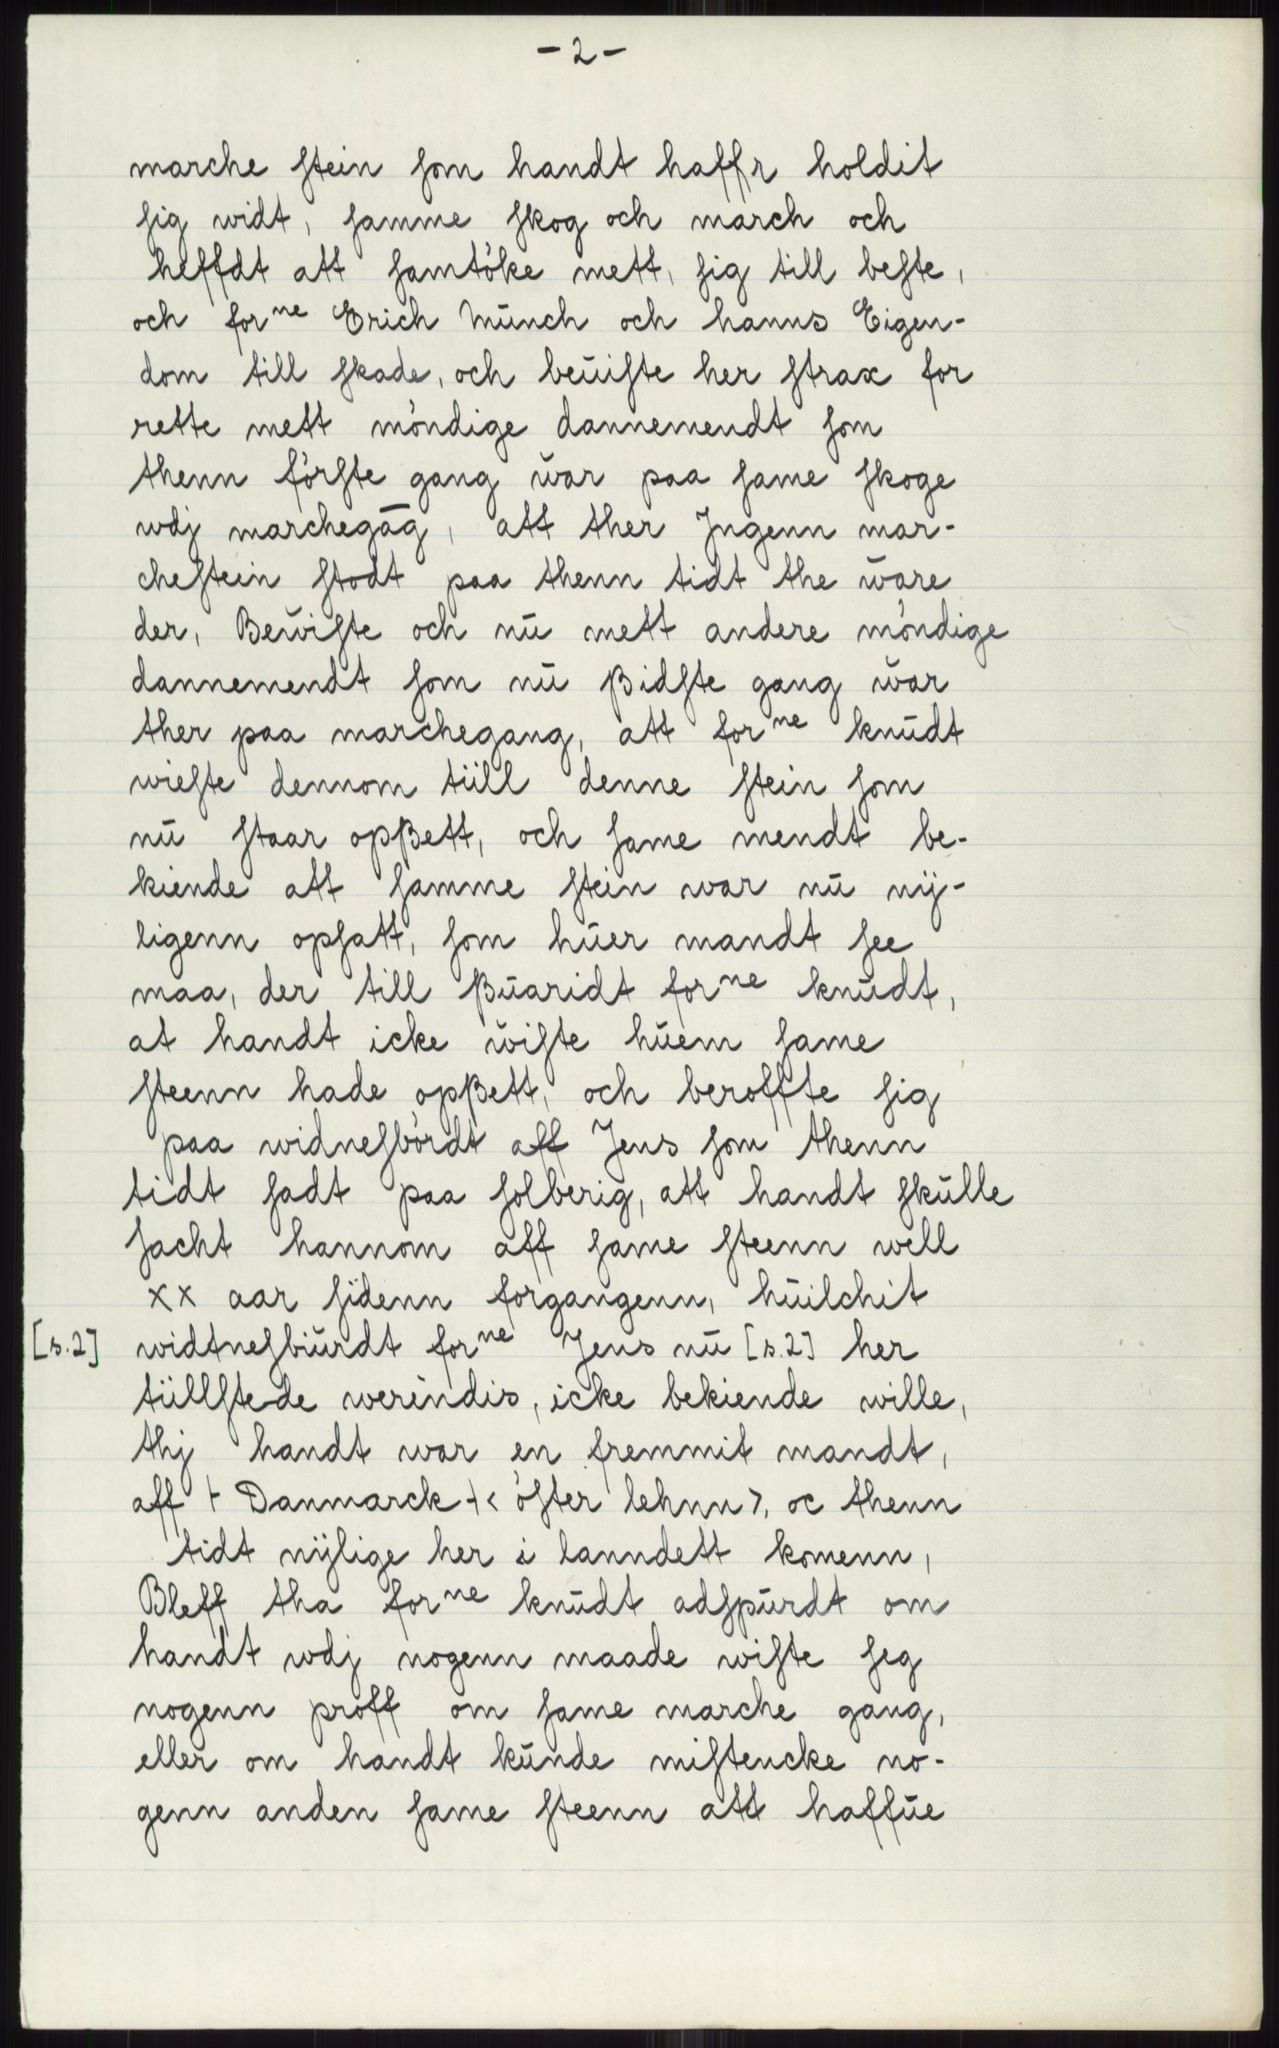 - 2 -
marche ſtein ſom handt haffr holdit
ſig widt, ſamme ſkog och march och
heffdt att ſamtöke mett, ſig till beſte,
och forⁿᵉ Erich Münch och hanns Eigen-
dom till ſkade, och beüiſte her ſtrax for
rette mett möndige dannemendt ſom
thenn förſte gang w̆ar paa ſame ſkoge
wdj marchegāg, att ther Jngenn mar-
cheſtein ſtodt paa thenn tidt the w̆are
der, Bew̆iſte och nū mett andere möndige
dannemendt ſom nū ßidſte gang w̆ar
ther paa marchegang, att forⁿᵉ knūdt
wieſte dennom tüll denne ſtein ſom
nū ſtaar opßett, och ſame mendt be-
kiende att ſamme ſtein war nū nÿ-
ligenn opſatt, ſom hūer mandt ſee
maa, der till ßūaridt forⁿᵉ knūdt,
at handt icke w̆iſte hūem ſame
ſteenn hade opßett, och beroffte ſig
paa widneſbördt aff Jens ſom thenn
tidt ſadt paa ſolberig, att handt ſkūlle
ſacht hannom aff ſame ſteenn well
xx aar ſidenn forgangenn, hūilchit
[s.2] widtneſbiūrdt forⁿᵉ Jens nū [s.2] her
tüllſtede werendis, icke bekiende wille,
thj handt war en fremmit mandt,
aff ⊦ Danmarck ⊣ < öſter lehnn >, oc thenn
tidt nÿlige her i lanndett komenn,
Bleff tha forⁿᵉ knūdt adſpūrdt om
handt wdj nogenn maade wiſte ſeg
nogenn proff om ſame marche gang,
eller om handt kūnde miſtencke no-
genn anden ſame ſteenn att haffūe